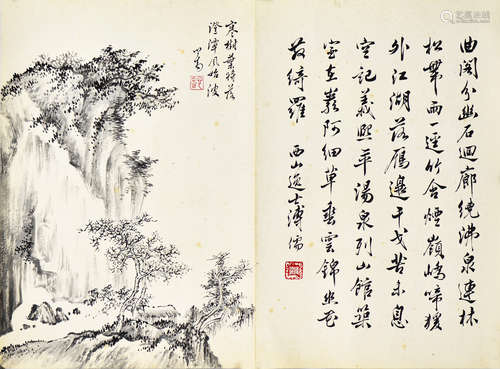 曲閣分幽石迴廊繞沸泉連林
松帶雨一徑竹含煙嶺嶠啼猨
外江湖落雁邊干戈苦未息
空記義熙年湯泉列山館築
室在巖阿細草垂雲錦幽花
散綺羅 西山逸士溥儒
寒樹葉將落
澄潭風始波
心畬